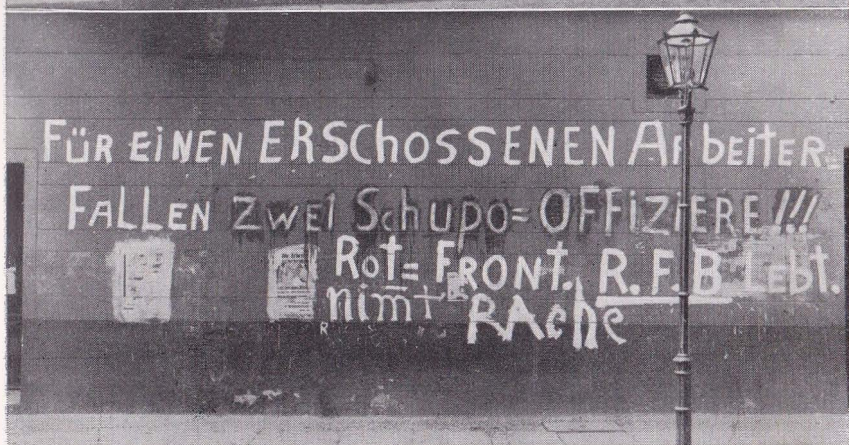 FÜR EiNEN ERSChOSSENEN ArbEiTER
FALLEN ZWEi SchUPO=OFFiZiERE!!!
Rot=FRONT. R.F.B Lebt.
nim̅t RAche